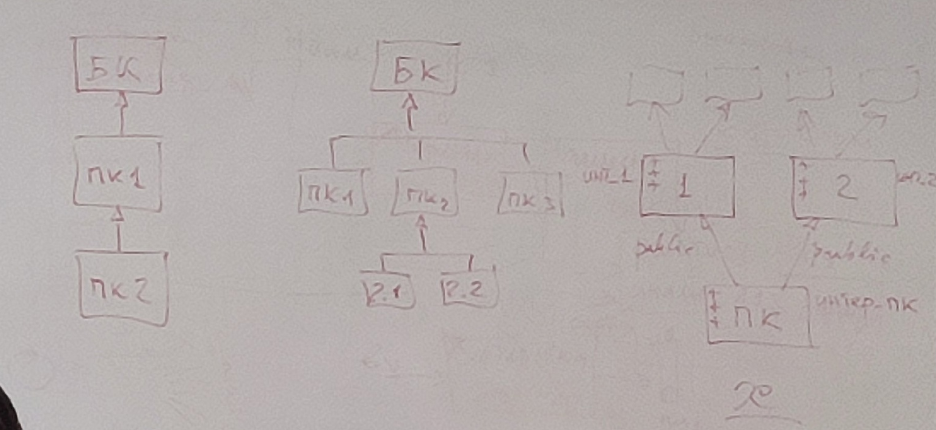 БК
ПК1
ПК2
БК
ПК1
ПК2
ПК3
2.1
2.2
инт_1
+
+
+
1
+
+
+
2
public
public
+
+
+
ПК
интер-ПК